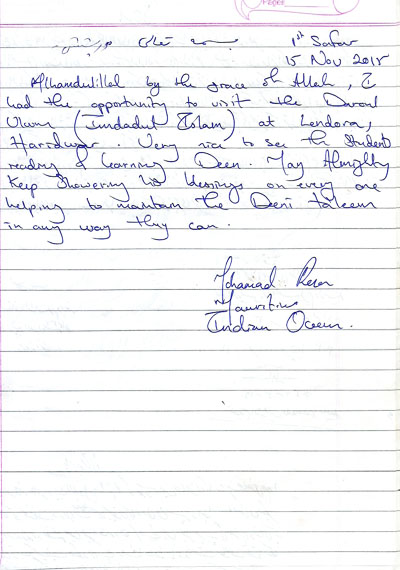 Page
باسمہ تعالیٰ
1st Safar
15 Nov 2015
Alhamdulillah by the grace of Allah, I
had the opportunity to visit the Darool
Uloom (Imdadul Islam) at Landora,
Haridwar. Very nice to see the students
reading & learning Deen. May Almighty
Keep Showering his blessings on every one
helping to maintain the Deeni taleem
in any way they can.
Mauritius
Indian Ocean.